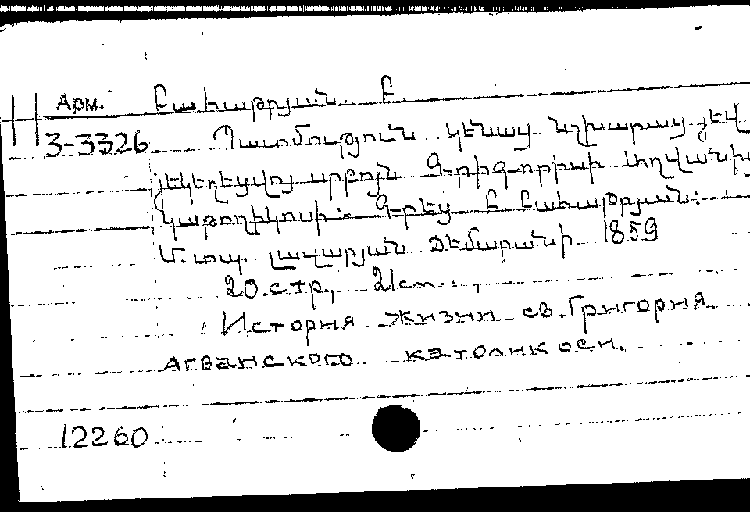 Арм. Բախաթրյան Բ
3-3326 Պատմություն կենաց նշխարաց յեվ
յեկեղեցվոյ սրբոյն Գրիգորիսի Աղվանից
կաթողիկոսի: Գրեց Բ Բախաթրյան:
Մ. տպ. Լազարյան Ճեմարանի 1859
20 стр., 21 см.
История жизни св. Григория
агванского католикоси.
12260